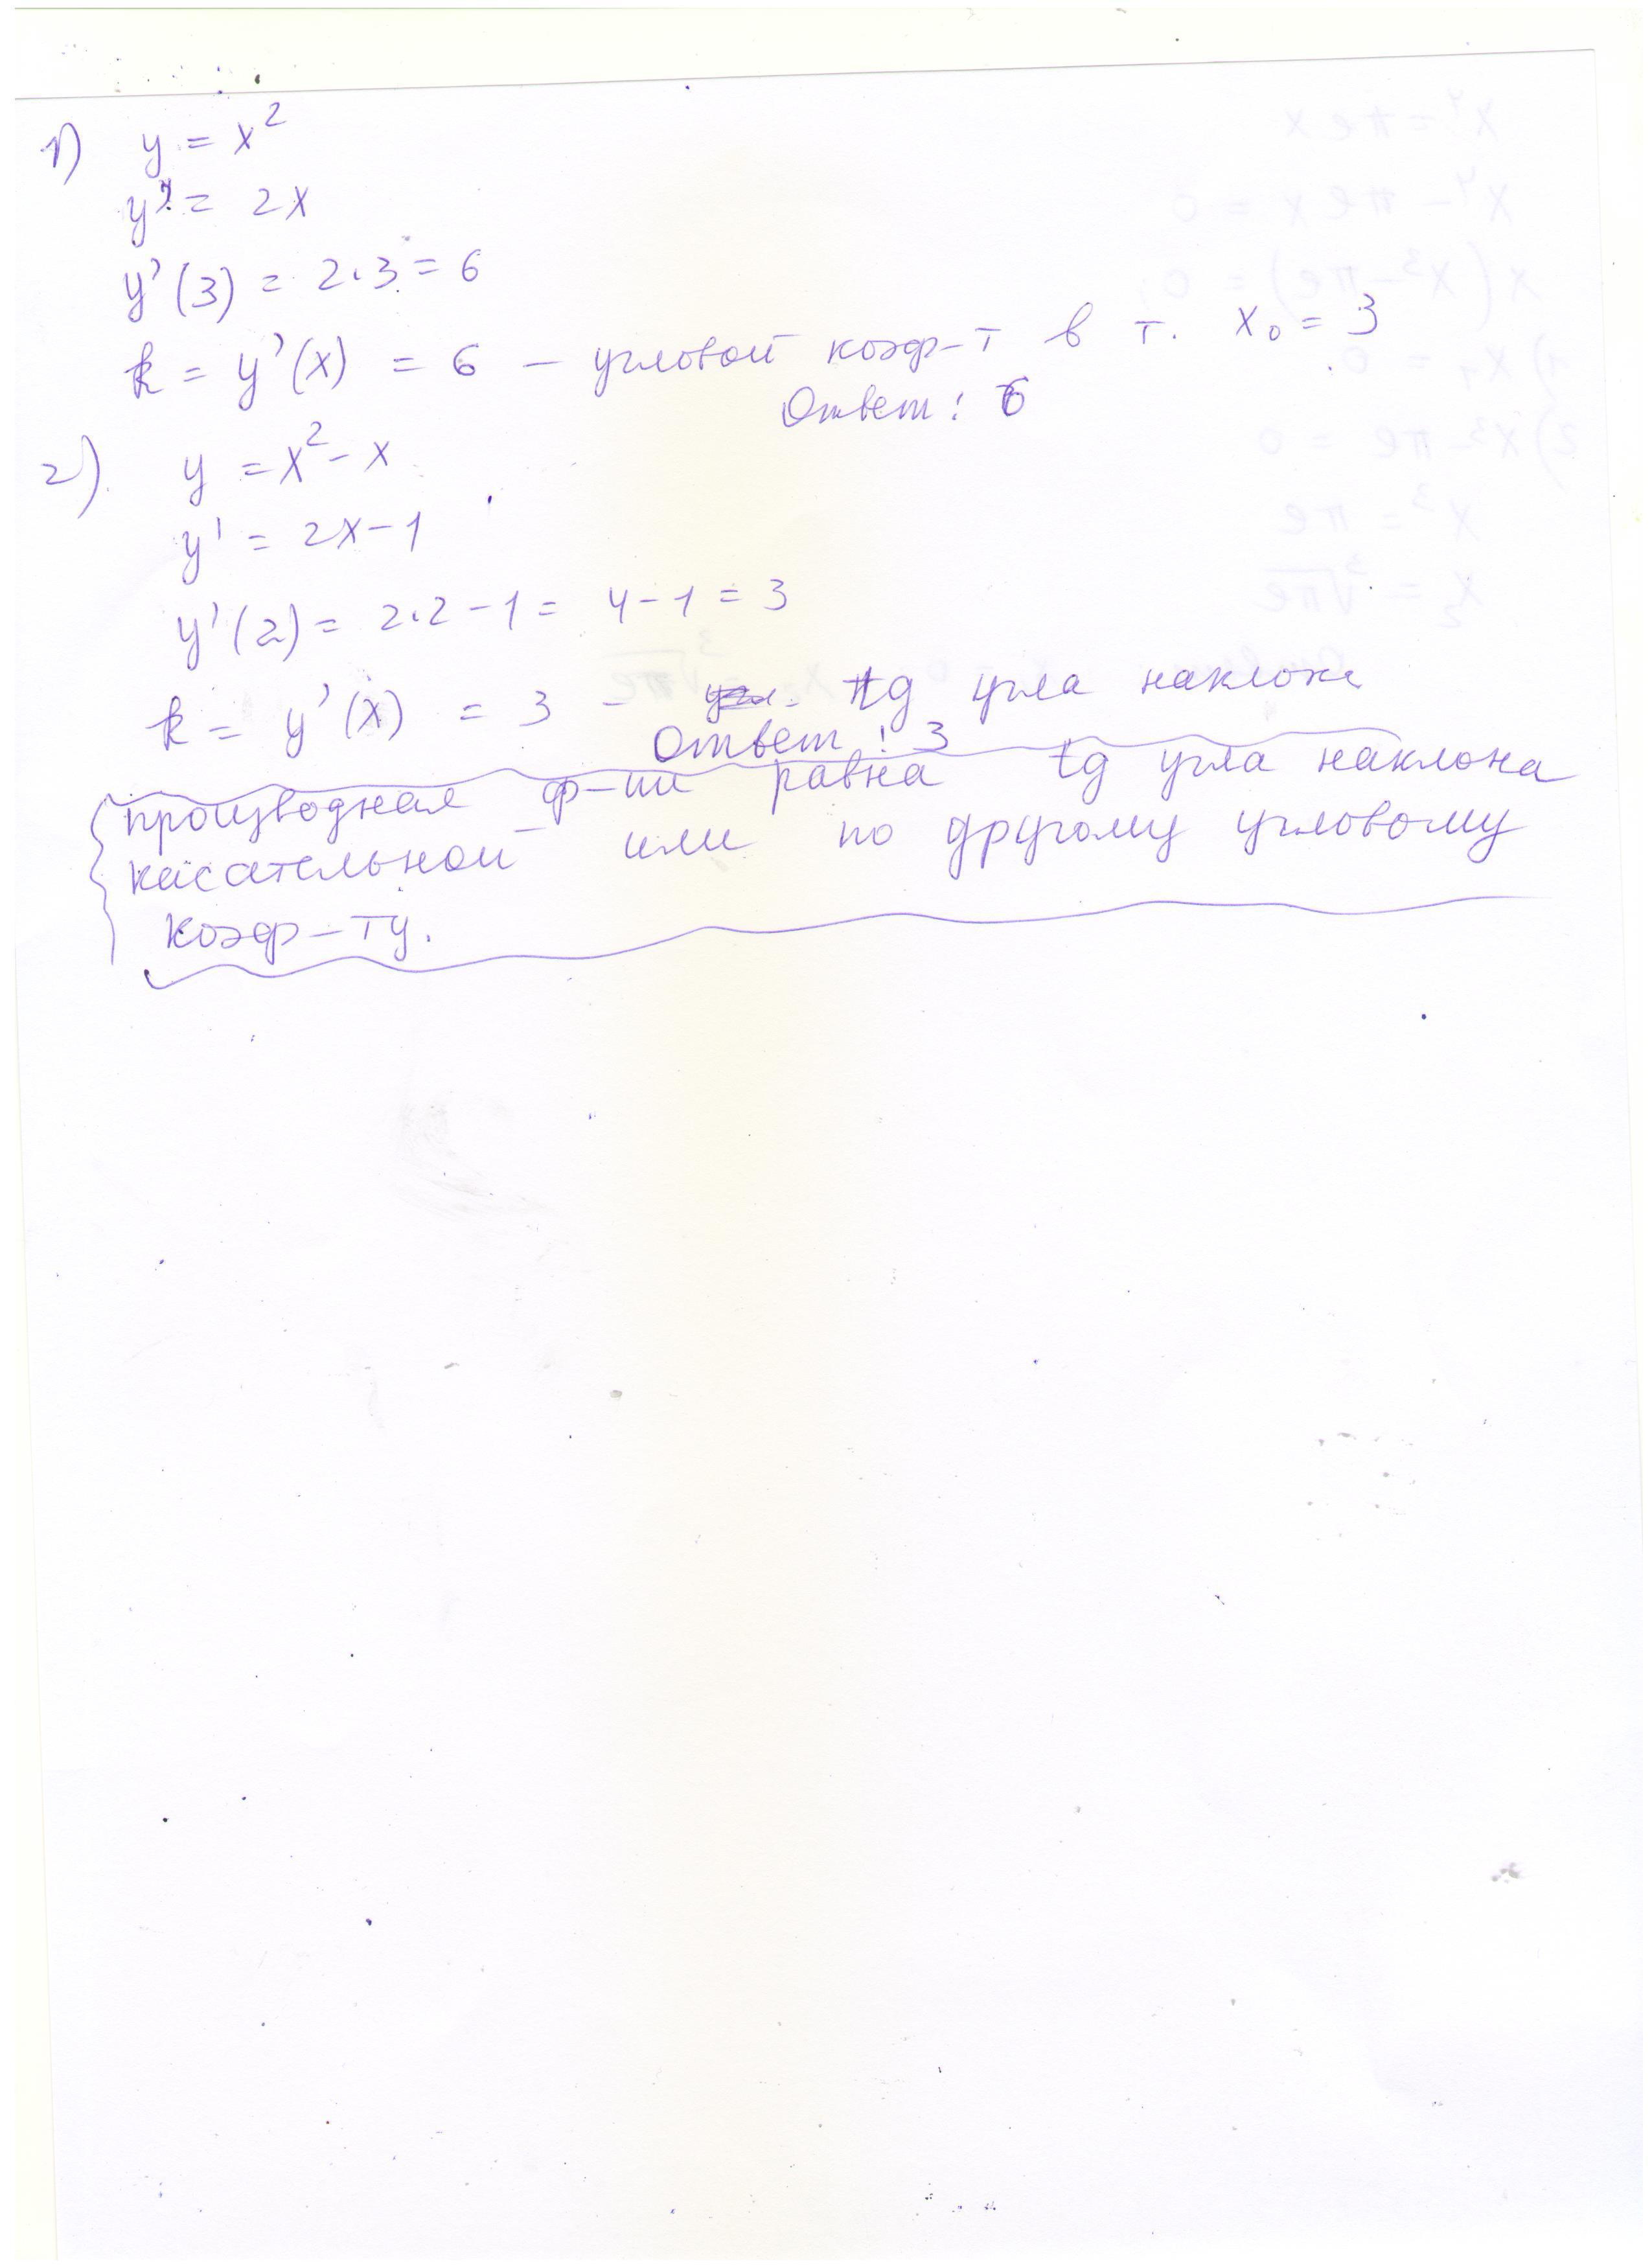 1) y = x²
y' = 2x
y'(3) = 2·3 = 6
k = y'(x) = 6 – угловой коэф-т в т. x₀ = 3
Ответ: 6
2) y = x² - x
y' = 2x - 1
y'(2) = 2·2 - 1 = 4 - 1 = 3
k = y'(x) = 3 - tg угла наклона
Ответ: 3
производная ф-ии равна tg угла наклона
касательной или по другому угловому
коэф-ту.